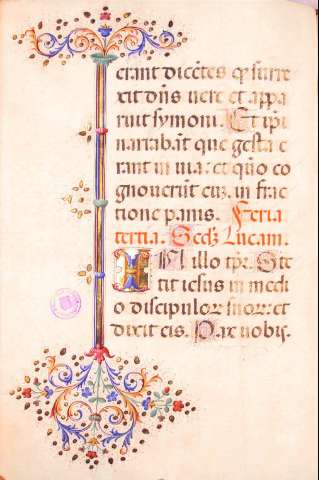 erant dicẽtes q̃ surre
xit dñs uere et appa
ruit symoni. Et ipi
narrabãt que gesta e
rant in uia: et quo co
gnouerũt eũ in frac
tione panis. Feria
tertia. Secd̃z Lucam.
IN illo tp̃r. Ste
tit iesus in medi
o discipulor suor: et
dixit eis. Pax uobis.